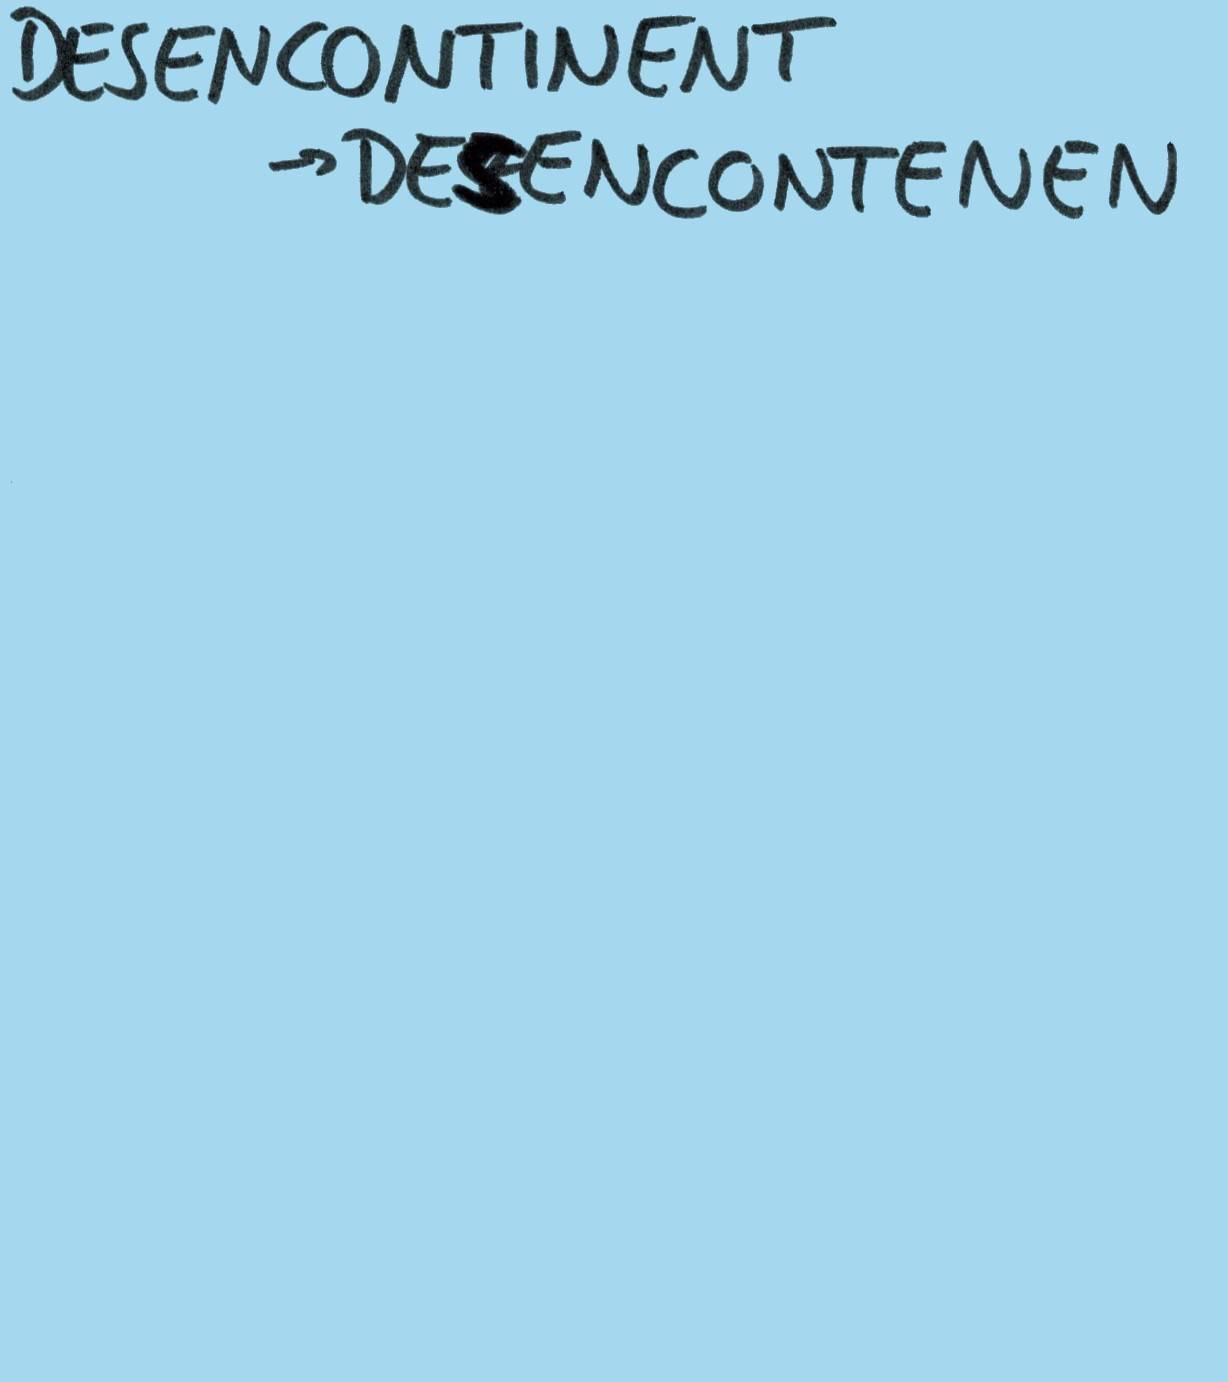 DESENCONTINENT
→DESENCONTENEN